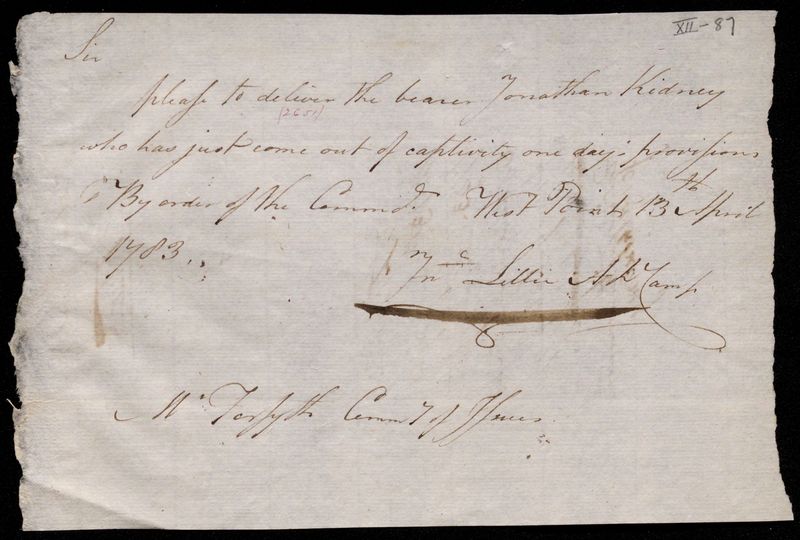 XII-87
Sir
please to deliver the bearer Jonathan Kidney
(2651)
who has just come out of captivity one day's provisions
By order of the Commdt. West Point 13th April
1783.
Jno Lillie A d Camp
Mr Forsyth Commy of Issues